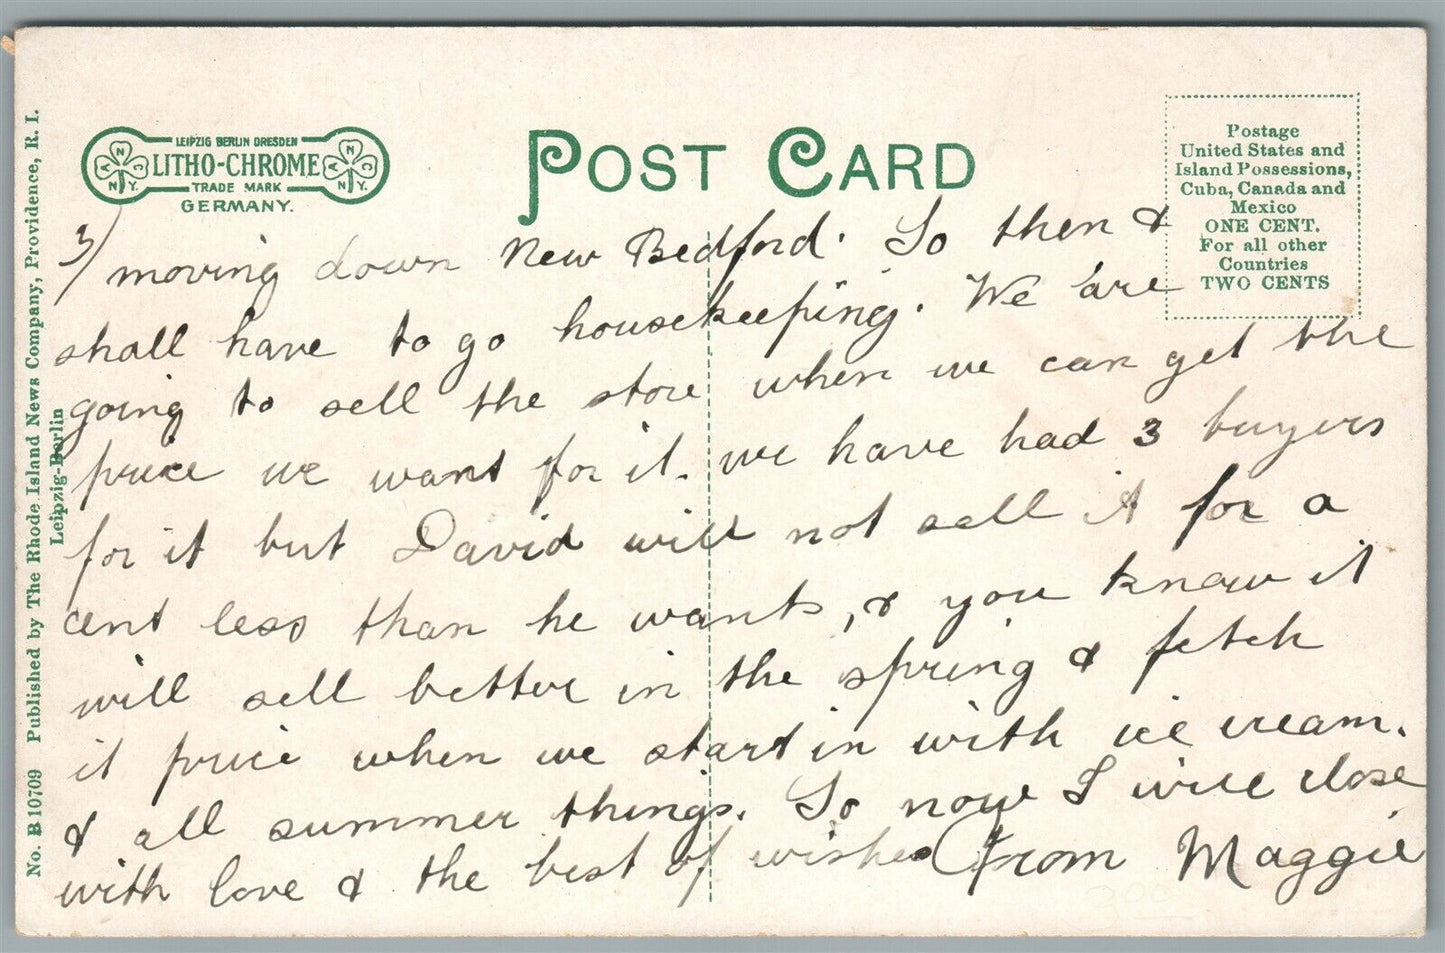 No. B 10709 Published by The Rhode Island News Company, Providence, R. I.
Leipzig-Berlin
LEIPZIG BERLIN DRESDEN
LITHO-CHROME
TRADE MARK
GERMANY.
A N C N.Y.
A N C N.Y.
POST CARD
Postage
United States and
Island Possessions,
Cuba, Canada and
Mexico
ONE CENT.
For all other
Countries
TWO CENTS
3/ moving down New Bedford. So then &
shall have to go housekeeping. We are
going to sell the store when we can get the
price we want for it. we have had 3 buyers
for it but David will not sell it for a
cent less than he wants, & you know it
will sell better in the spring & fetch
it price when we start in with ice cream.
& all summer things. So now I will close
with love & the best of wishes From Maggie